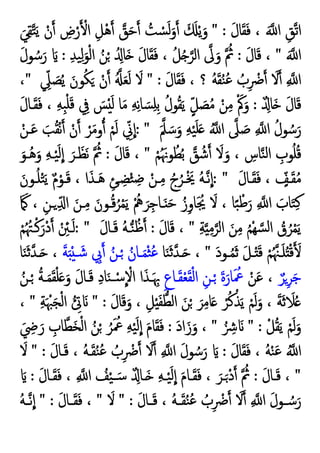 اتَّقِ اللَّهَ ، فَقَالَ : " وَيْلَكَ أَوَلَسْتُ أَحَقَّ أَهْلِ الْأَرْضِ أَنْ يَتَّقِيَ
اللَّهَ " ، قَالَ : ثُمَّ وَلَّى الرَّجُلُ ، فَقَالَ خَالِدُ بْنُ الْوَلِيدِ : يَا رَسُولَ
اللَّهِ أَلَا أَضْرِبُ عُنُقَهُ ؟ ، فَقَالَ : " لَا لَعَلَّهُ أَنْ يَكُونَ يُصَلِّي "،
قَالَ خَالِدٌ : وَكَمْ مِنْ مُصَلٍّ يَقُولُ بِلِسَانِهِ مَا لَيْسَ فِي قَلْبِهِ ، فَقَالَ
رَسُولُ اللَّهِ صَلَّى اللَّهُ عَلَيْهِ وَسَلَّمَ : " إِنِّي لَمْ أُومَرْ أَنْ أَنْقُبَ عَنْ
قُلُوبِ النَّاسِ ، وَلَا أَشُقَّ بُطُونَهُمْ " ، قَالَ : ثُمَّ نَظَرَ إِلَيْهِ وَهُوَ
مُقَفٍّ ، فَقَالَ : " إِنَّهُ يَخْرُجُ مِنْ ضِئْضِئِ هَذَا ، قَوْمٌ يَتْلُونَ
كِتَابَ اللَّهِ رَطْبًا ، لَا يُجَاوِزُ حَنَاجِرَهُمْ يَمْرُقُونَ مِنَ الدِّينِ ، كَمَا
يَمْرُقُ السَّهْمُ مِنَ الرَّمِيَّةِ " ، قَالَ : أَظُنُّهُ قَالَ : " لَئِنْ أَدْرَكْتُهُمْ
لَأَقْتُلَنَّهُمْ قَتْلَ ثَمُودَ " ، حَدَّثَنَا عُثْمَانُ بْنُ أَبِي شَيْبَةَ ، حَدَّثَنَا
جَرِيرٌ ، عَنْ عُمَارَةَ بْنِ الْقَعْقَاعِ بِهَذَا الْإِسْنَادِ ، قَالَ وَعَلْقَمَةُ بْنُ
عُلَاثَةَ ، وَلَمْ يَذْكُرْ عَامِرَ بْنَ الطُّفَيْلِ ، وَقَالَ : " نَاتِئُ الْجَبْهَةِ " ،
وَلَمْ يَقُلْ : " نَاشِزُ " : وَزَادَ : فَقَامَ إِلَيْهِ عُمَرُ بْنُ الْخَطَّابِ رَضِيَ
اللَّهُ عَنْهُ ، فَقَالَ : يَا رَسُولَ اللَّهِ أَلَا أَضْرِبُ عُنُقَهُ ، قَالَ : " لَا
" ، قَالَ : ثُمَّ أَدْبَرَ ، فَقَامَ إِلَيْهِ خَالِدٌ سَيْفُ اللَّهِ ، فَقَالَ : يَا
رَسُولَ اللَّهِ أَلَا أَضْرِبُ عُنُقَهُ ، قَالَ : " لَا " ، فَقَالَ : " إِنَّهُ